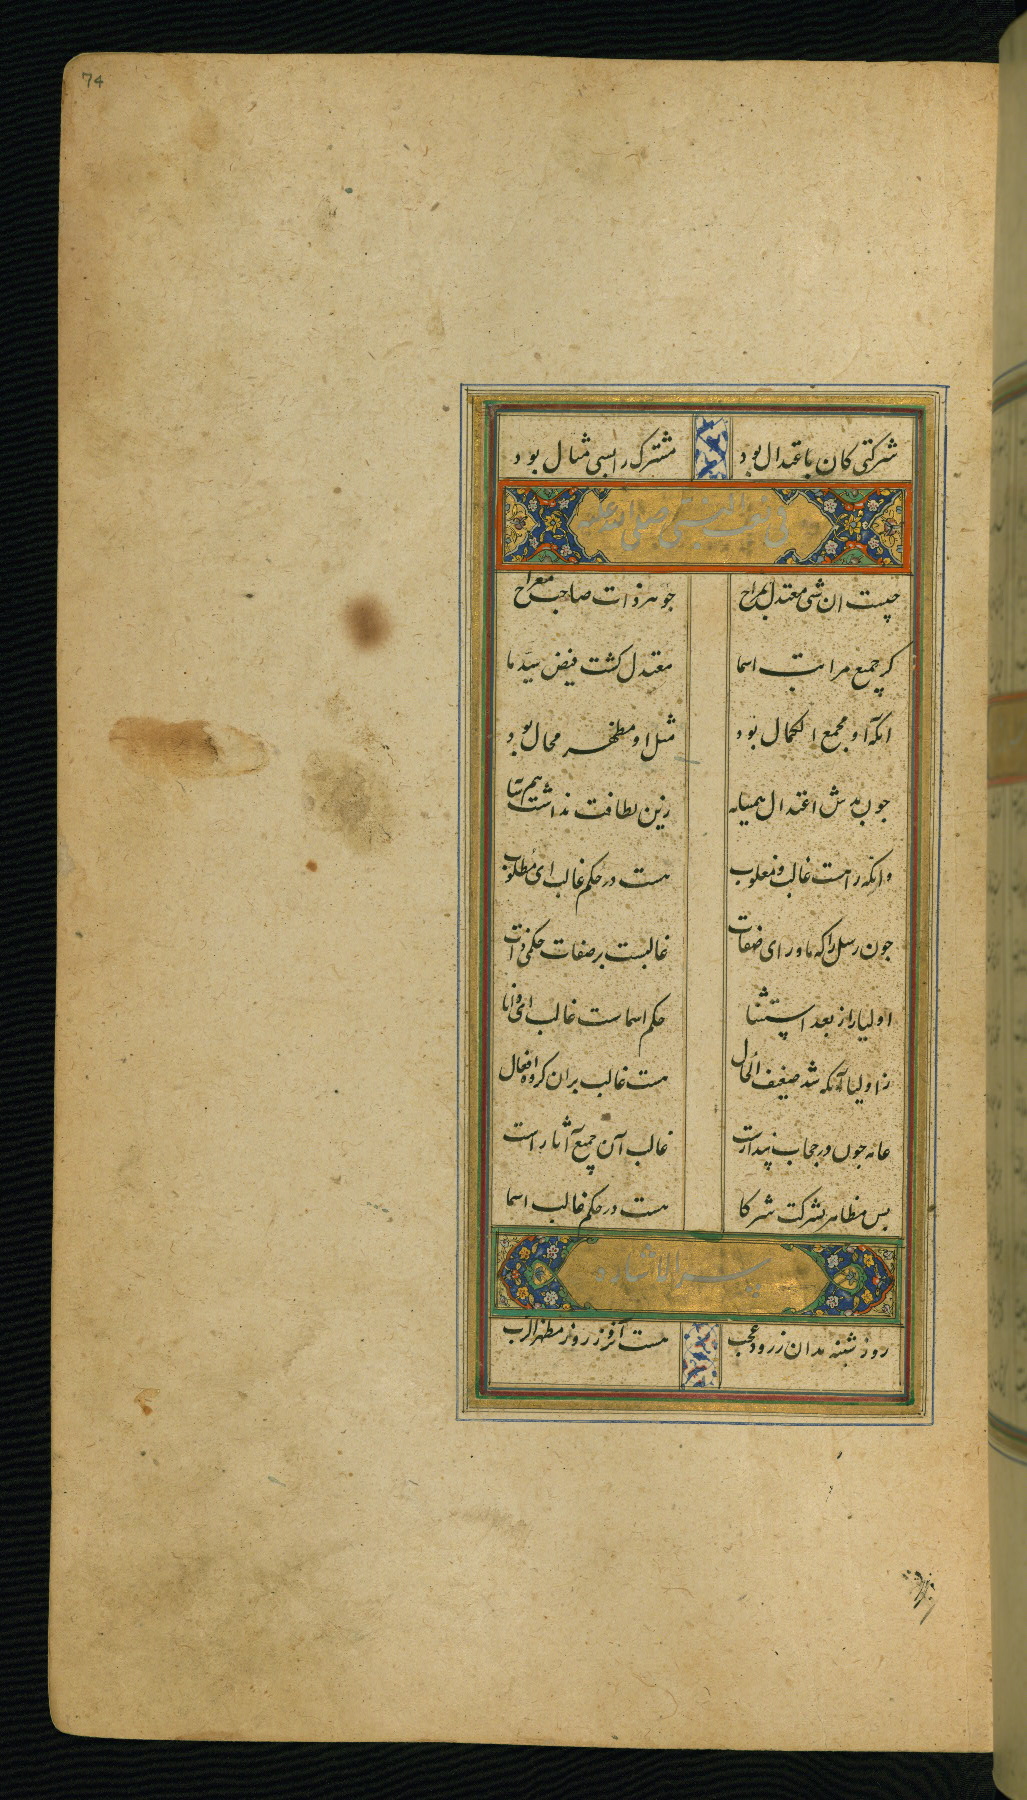 74
شرکتی کان باعتدال بود مشترک را بسی مثال بود
فی نعت النبی صلی الله علیه
چیست ان شی معتدل بمزاج جوهر ذات صاحب معراج
کز جمیع مراتب اسما معتدل کشت فیض سید ما
انکه او مجمع الکمال بود مثل او مظهر محال بود
چون اعتدال زین لطافت نداشت هم
وانکه راهست غالب و مغلوب هست در حکم غالب ای مطلوب
جون رسل را که ماورای صفات غالبست بر صفات حکمی ذات
اولیا را از بعد استثنا حکم اسماست غالب ای دانا
ز اولیا آنکه شد ضعیف الحال هست غالب بران کروه افعال
عامه جون در حجاب پندارست غالب آن جمیع آثار است
پس مظاهر بشرکت شرکا هست در حکم غالب اسما
سر الاشاره
روز شبنه بدان ز روز عجب هست آنروز روز مظهر الرب